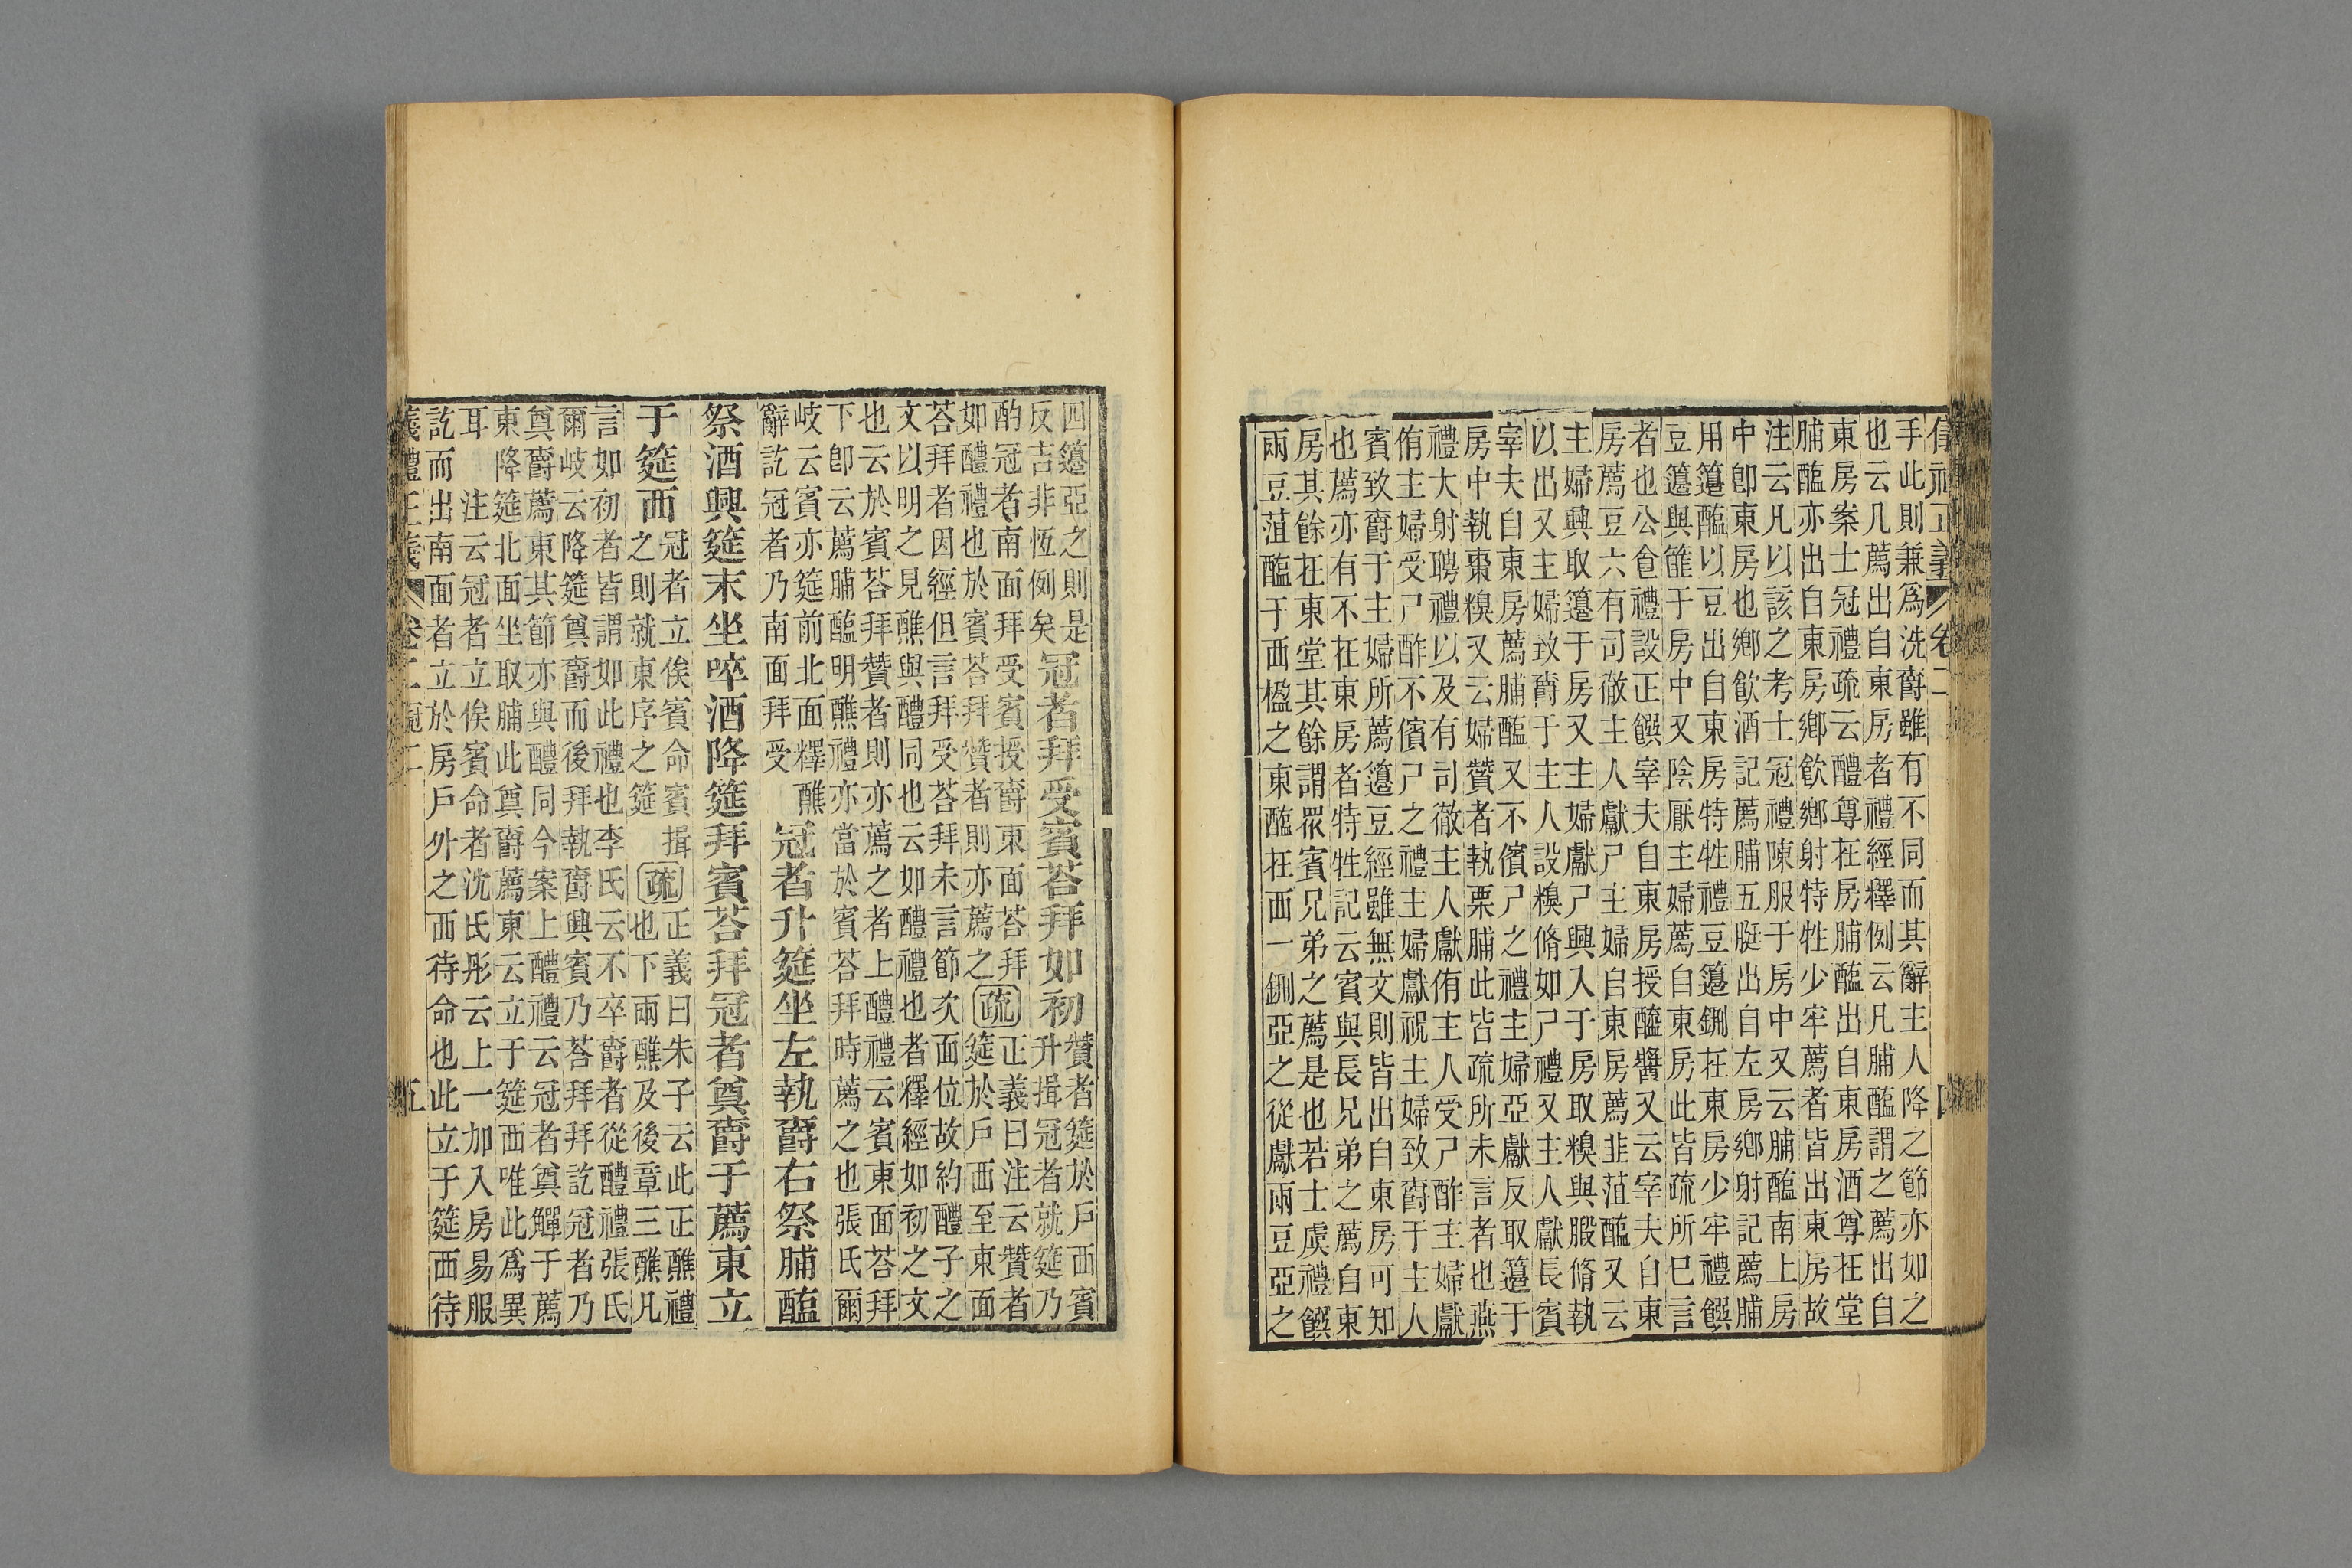 手此則兼爲洗爵雖有不同而其辭主人降之節亦如之
也云凡薦出自東房者禮經釋例云凡脯醢謂之薦出自
東房案士冠禮疏云醴尊在房脯醢出自東房酒尊在堂
脯醢亦出自東房鄉飲鄉射特牲少牢薦者皆出東房故
注云凡以該之考士冠禮陳服于房中又云脯醢南上房
中卽東房也鄉飲酒記薦脯五脡出自左房鄉射記薦脯
用籩醢以豆出自東房特牲禮豆籩鉶在東房少牢禮饌
豆籩與篚于房中又陰厭主婦薦自東房此皆疏所巳言
者也公食禮設正饌宰夫自東房授醯醬又云宰夫自東
房薦豆六有司徹主人獻尸主婦自東房薦韭菹醢又云
主婦興取籩于房又主婦獻尸興入于房取糗與腶脩執
以出又主婦致爵于主人設糗脩如尸禮又主人獻長賓
宰夫自東房薦脯醢又不儐尸之禮主婦亞獻反取籩于
房中執棗糗又云婦贊者執栗脯此皆疏所未言者也燕
禮大射聘禮以及有司徹主人獻侑主人受尸酢主婦獻
侑主婦受尸酢不儐尸之禮主婦獻祝主婦致爵于主人
賓致爵于主婦所薦籩豆經雖無文則皆出自東房可知
也薦亦有不在東房者特牲記云賓與長兄弟之薦自東
房其餘在東堂其餘謂眾賓兄弟之薦是也若士虞禮饌
兩豆菹醢于西楹之東醢在西一鉶亞之從獻兩豆亞之
四籩亞之則是
反吉非恆例矣冠者拜受賓荅拜如初贊者筵於戶西賓升揖冠者就筵乃
酌冠者南面拜受賓授爵東面荅拜
如醴禮也於賓荅拜贊者則亦薦之疏正義曰注云贊者筵於戶西至東面
荅拜者因經但言拜受荅拜未言節次面位故約醴子之
文以明之見醮與醴同也云如醴禮也者釋經如初之文
也云於賓荅拜贊者則亦薦之者上醴禮云賓東面荅拜
下卽云薦脯醢明醮禮亦當於賓荅拜時薦之也張氏爾
岐云賓亦筵前北面釋醮
辭訖冠者乃南面拜受冠者升筵坐左執爵右祭脯醢
祭酒興筵末坐啐酒降筵拜賓荅拜冠者奠爵于薦東立
于筵西冠者立俟賓命賓揖之則就東序之筵疏正義曰朱子云此正醮禮也下兩醮及後章三醮凡
言如初者皆謂如此禮也李氏云不卒爵者從醴禮張氏
爾岐云降筵奠爵而後拜執爵興賓乃荅拜拜訖冠者乃
奠爵薦東其節亦與醴同今案上醴禮云冠者奠觶于薦
東降筵北面坐取脯此奠爵薦東云立于筵西唯此爲異
耳注云冠者立俟賓命者沈氏彤云上一加入房易服
訖而出南面者立於房戶外之西待命也此立于筵西待